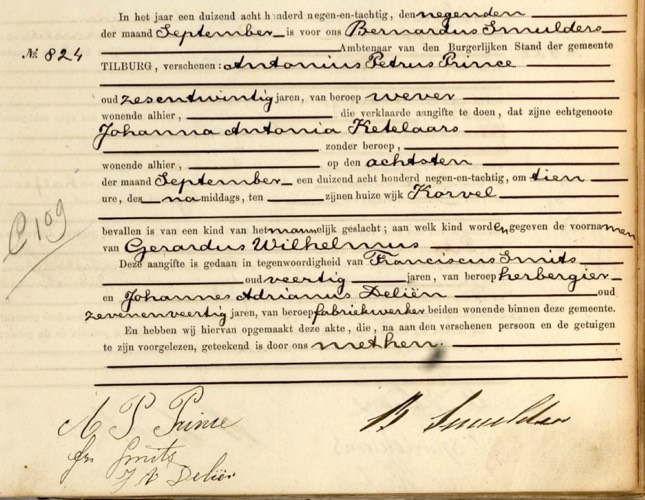 In het jaar een duizend acht honderd negen-en-tachtig, den negenden
der maand September is voor ons Bernardus Smulders
Ambtenaar van den Burgerlijken Stand der gemeente
№ 824
TILBURG, verschenen: Antonius Petrus Prince
oud zesentwintig jaren, van beroep wever
wonende alhier, die verklaarde aangifte te doen, dat zijne echtgenoote
Johanna Antonia Ketelaars
zonder beroep,
wonende alhier, op den achtsten
der maand September een duizend acht honderd negen-en-tachtig, om tien
ure, des namiddags, ten zijnen huize wijk Korvel
bevallen is van een kind van het mannelijk geslacht; aan welk kind worden gegeven de voornamen
van Gerardus Wilhelmus
Deze aangifte is gedaan in tegenwoordigheid van Franciscus Smits
oud veertig jaren, van beroep herbergier
en Johannes Adrianus Deliën oud
zevenenveertig jaren, van beroep fabriekwerker beiden wonende binnen deze gemeente.
En hebben wij hiervan opgemaakt deze akte, die, na aan den verschenen persoon en de getuigen
te zijn voorgelezen, geteekend is door ons met hen.
A P Prince
B Smulders
fr. Smits
J A Deliën